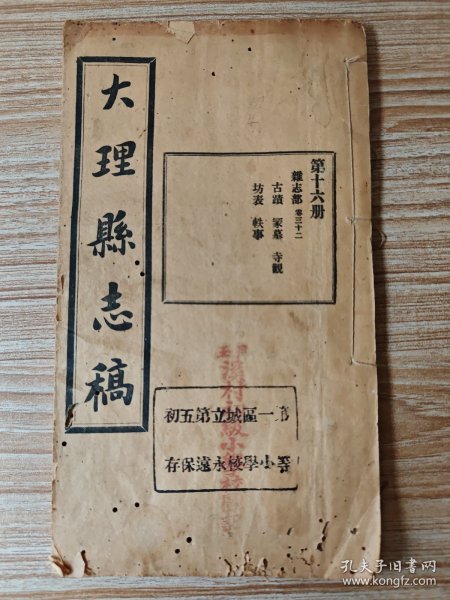 大理縣志稿
第十六册
雜志部 卷三十二
古蹟 冢墓 寺觀
坊表 軼事
第一區城立第五初
小學校永遠保存
孔夫子旧书网
www.kongfz.com